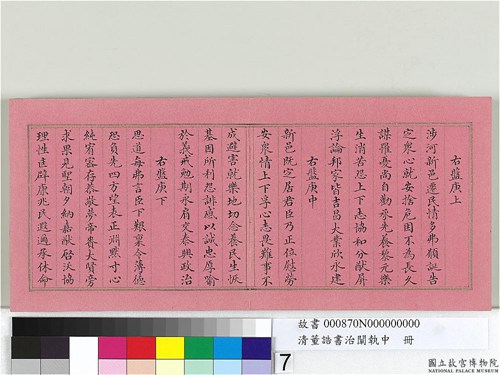 右盤庚上
涉河新邑遷民情多弗願誕告
定衆心就安捨危困不為長久
謀罹憂尚自勸承先養黎元樂
生消苦怨上下志協和分猷屏
浮論邦家皆吉昌大業欣永建
右盤庚中
新邑既定居君臣乃正位慰勞
安衆情上下孚心志畏難事不
成避害就樂地切念養民生恢
基因所利怨誹感以誠忠厚喻
於義戒勉期永肩交泰興政治
右盤庚下
思道每弗言臣下艱稟令薄德
恐負先四方望表正淵默寸心
純宥密存恭敬夢帝賚大賢旁
求果見聖朝夕納嘉猷啟沃協
理性匡辟康兆民遐邇奉休命
故書 000870N000000000
清董誥書治闡執中 冊
7
國立故宮博物院
NATIONAL PALACE MUSEUM